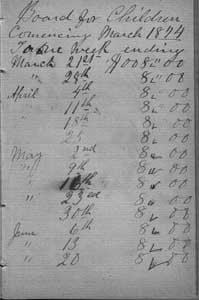 Board for Children
Comencing March 1874
To One Week ending
March 21st $008"00
" 28th 8"00
April 4th 8"00
" 11th 8"00
" 18th 8"00
" 25 8"00
May 2nd 8"00
" 9th 8"00
" 16th 8"00
" 23rd 8"00
" 30th 8"00
June 6th 8"00
" 13 8"00
" 20 8"00